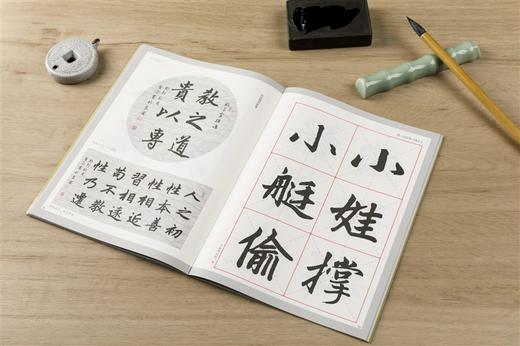 教之道
貴以專
人之初
性本善
性相近
習相遠
苟不教
性乃遷
小娃撑
小艇偷